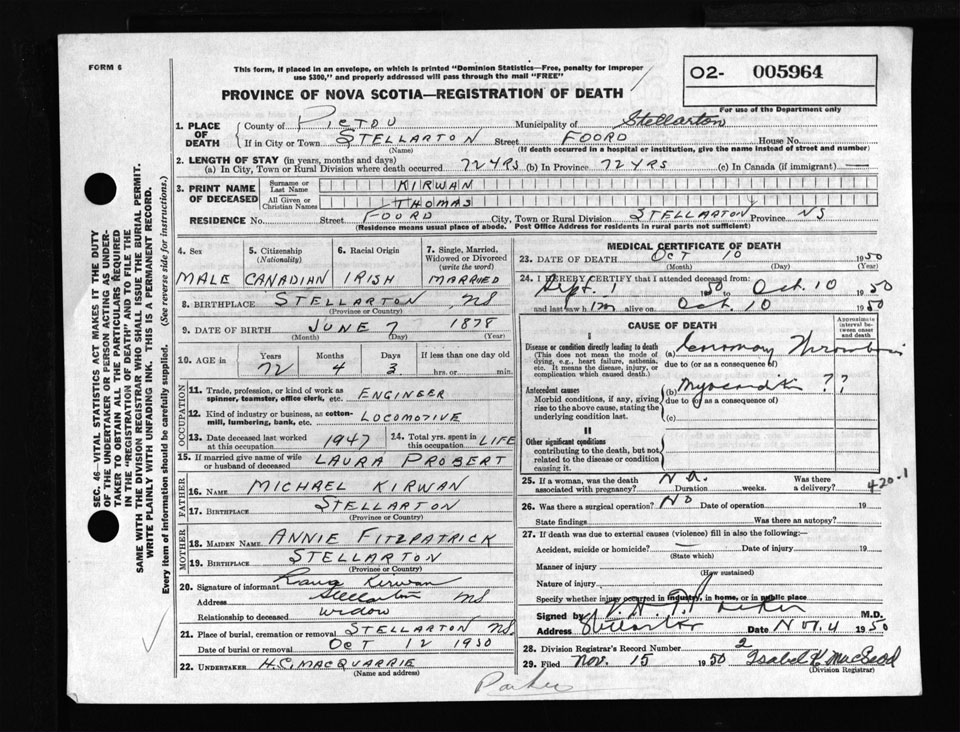 FORM 6
This form, if placed in an envelope, on which is printed "Dominion Statistics—Free, penalty for improper
use $300," and properly addressed will pass through the mail "FREE"
O2- 005964
For use of the Department only
PROVINCE OF NOVA SCOTIA—REGISTRATION OF DEATH
1. PLACE OF DEATH County of PICTOU Municipality of Stellarton
If in City or Town STELLARTON Street FOORD House No.
(Name) (If death occurred in a hospital or institution, give the name instead of street and number)
2. LENGTH OF STAY (in years, months and days)
(a) In City, Town or Rural Division where death occurred 72 YRS (b) In Province 72 YRS (c) In Canada (if immigrant) —
3. PRINT NAME OF DECEASED Surname or Last Name KIRWAN
All Given or Christian Names THOMAS
RESIDENCE No. Street FOORD City, Town or Rural Division STELLARTON Province NS
(Residence means usual place of abode. Post Office Address for residents in rural parts not sufficient)
4. Sex 5. Citizenship (Nationality) 6. Racial Origin 7. Single, Married, Widowed or Divorced (write the word)
MALE CANADIAN IRISH MARRIED
8. BIRTHPLACE STELLARTON NS
(Province or Country)
9. DATE OF BIRTH JUNE 7 1878
(Month) (Day) (Year)
10. AGE in Years Months Days If less than one day old
72 4 3 hrs. or min.
OCCUPATION
11. Trade, profession, or kind of work as spinner, teamster, office clerk, etc. ENGINEER
12. Kind of industry or business, as cotton-mill, lumbering, bank, etc. LOCOMOTIVE
13. Date deceased last worked at this occupation 1947 14. Total yrs. spent in this occupation LIFE
15. If married give name of wife or husband of deceased LAURA PROBERT
FATHER
16. NAME MICHAEL KIRWAN
17. BIRTHPLACE STELLARTON
(Province or Country)
MOTHER
18. MAIDEN NAME ANNIE FITZPATRICK
19. BIRTHPLACE STELLARTON
(Province or Country)
20. Signature of informant Kirwan
Address Stellarton NS
Relationship to deceased widow
21. Place of burial, cremation or removal STELLARTON NS.
Date of burial or removal OCT 12 1950
22. UNDERTAKER H.C. MACQUARRIE
(Name and address)
MEDICAL CERTIFICATE OF DEATH
23. DATE OF DEATH OCT 10 1950
(Month) (Day) (Year)
24. I HEREBY CERTIFY that I attended deceased from:
Sept. 1 1950 to Oct. 10 1950
and last saw h im alive on Oct. 10 1950
CAUSE OF DEATH
Approximate interval between onset and death
I
Disease or condition directly leading to death (a) Coronary Thrombosis
(This does not mean the mode of dying, e.g., heart failure, asthenia, etc. It means the disease, injury, or complication which caused death.)
due to (or as a consequence of)
Antecedent causes (b) Myocarditis ??
Morbid conditions, if any, giving rise to the above cause, stating the underlying condition last.
due to (or as a consequence of)
(c)
II
Other significant conditions
contributing to the death, but not related to the disease or condition causing it.
25. If a woman, was the death associated with pregnancy? N.A. Duration weeks. Was there a delivery?
420-1
26. Was there a surgical operation? No Date of operation 19
State findings Was there an autopsy?
27. If death was due to external causes (violence) fill in also the following:—
Accident, suicide or homicide? — Date of injury 19
(State which)
Manner of injury
(How sustained)
Nature of injury
Specify whether injury occurred in industry, in home, or in public place
Signed by M.D.
Address Stellarton Date Nov. 4 1950
28. Division Registrar's Record Number 2
29. Filed Nov. 15 1950 Isabel K. MacLeod
(Division Registrar)
Parker
SEC. 46—VITAL STATISTICS ACT MAKES IT THE DUTY
OF THE UNDERTAKER OR PERSON ACTING AS UNDERTAKER
TO OBTAIN ALL THE PARTICULARS REQUIRED
IN THE "REGISTRATION OF DEATH" AND TO FILE THE
SAME WITH THE DIVISION REGISTRAR WHO SHALL ISSUE THE BURIAL PERMIT.
WRITE PLAINLY WITH UNFADING INK. THIS IS A PERMANENT RECORD.
Every item of information should be carefully supplied. (See reverse side for instructions.)